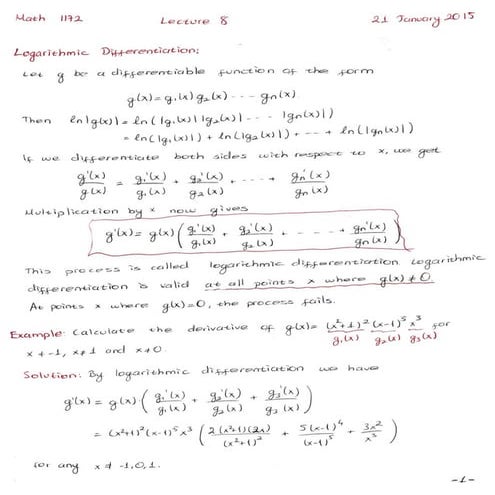 Math 1172 Lecture 8 21 January 2015
Logarithmic Differentiation:
Let g be a differentiable function of the form
g(x) = g₁(x) g₂(x) ---- gₙ(x)
Then ln|g(x)| = ln(|g₁(x)||g₂(x)| --- |gₙ(x)|)
= ln(|g₁(x)|) + ln(|g₂(x)|) + --- + ln(|gₙ(x)|)
If we differentiate both sides with respect to x, we get
g'(x)/g(x) = g₁'(x)/g₁(x) + g₂'(x)/g₂(x) + ----- + gₙ'(x)/gₙ(x)
Multiplication by x now gives
g'(x) = g(x) (g₁'(x)/g₁(x) + g₂'(x)/g₂(x) + ----- + gₙ'(x)/gₙ(x))
This process is called logarithmic differentiation. Logarithmic
differentiation is valid at all points x where g(x) ≠ 0.
At points x where g(x)=0, the process fails.
Example: Calculate the derivative of g(x) = (x²+1)² (x-1)⁵ x³ for
g₁(x) g₂(x) g₃(x)
x ≠ -1, x ≠ 1 and x ≠ 0.
Solution: By logarithmic differentiation we have
g'(x) = g(x) · (g₁'(x)/g₁(x) + g₂'(x)/g₂(x) + g₃'(x)/g₃(x))
= (x²+1)² (x-1)⁵ x³ (2(x²+1)(2x)/(x²+1)² + 5(x-1)⁴/(x-1)⁵ + 3x²/x³)
for any x ≠ -1,0,1.
-1-